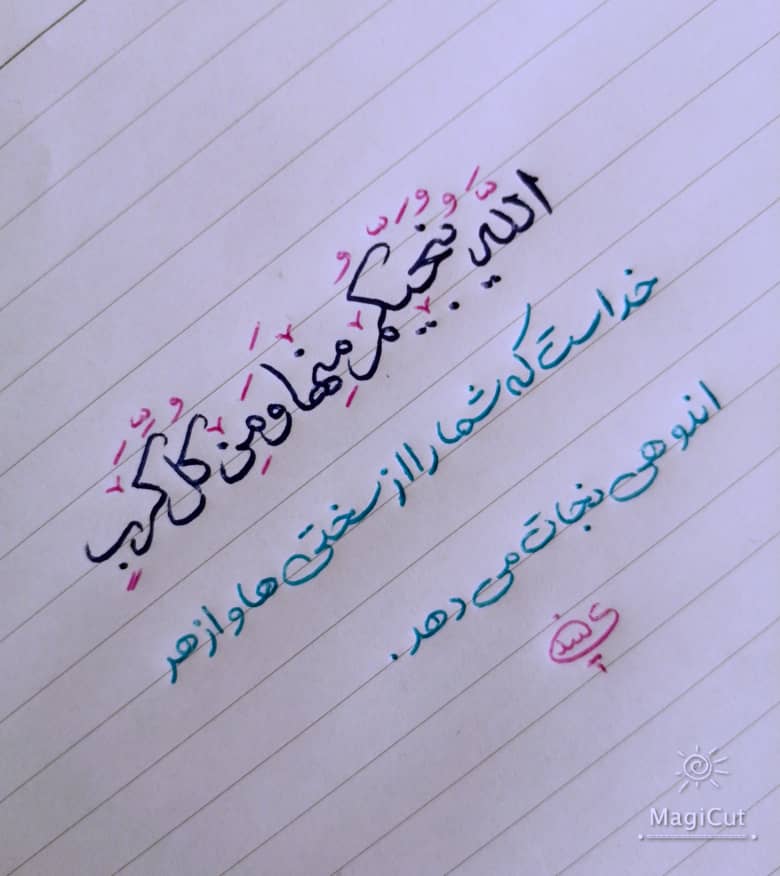 اللَّهُ يُنَجِّيكُمْ مِنْهَا وَمِنْ كُلِّ كَرْبٍ
خداست که شما را از سختی ها و از هر
اندوهی نجات می دهد.
MagiCut